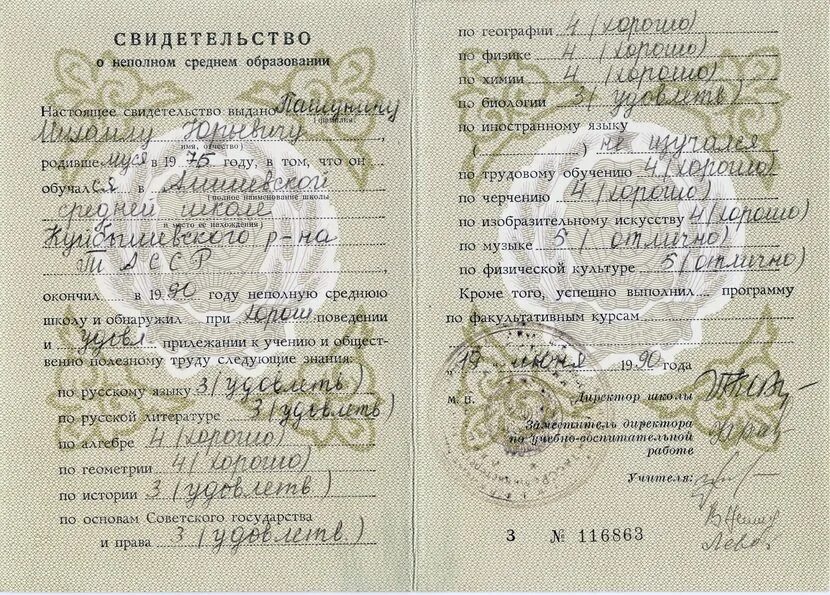 СВИДЕТЕЛЬСТВО
о неполном среднем образовании
Настоящее свидетельство выдано Пашунину
(фамилия)
Михаилу Юрьевичу
имя, отчество)
родившемуся в 1975 году, в том, что он
обучался в
(полное наименование школы
средней школе
и место ее нахождения)
Куйбышевского р-на
ТАССР
окончил в 1990 году неполную среднюю
школу и обнаружил при хорош. поведении
и удовл. прилежании к учению и общест-
венно полезному труду следующие знания:
по русскому языку 3 (удовлетв)
по русской литературе 3 (удовлетв)
по алгебре 4 (хорошо)
по геометрии 4 (хорошо)
по истории 3 (удовлетв)
по основам Советского государства
и права 3 (удовлетв.)
по географии 4 (хорошо)
по физике 4 (хорошо)
по химии 4 (хорошо)
по биологии 3 (удовлетв)
по иностранному языку
( ) не изучался
по трудовому обучению 4 (хорошо)
по черчению 4 (хорошо)
по изобразительному искусству 4 (хорошо)
по музыке 5 (отлично)
по физической культуре 5 (отлично)
Кроме того, успешно выполнил программу
по факультативным курсам
"19" июня 1990 года
М. П.
Директор школы
Заместитель директора
по учебно-воспитательной
работе
Учителя:
З № 116863